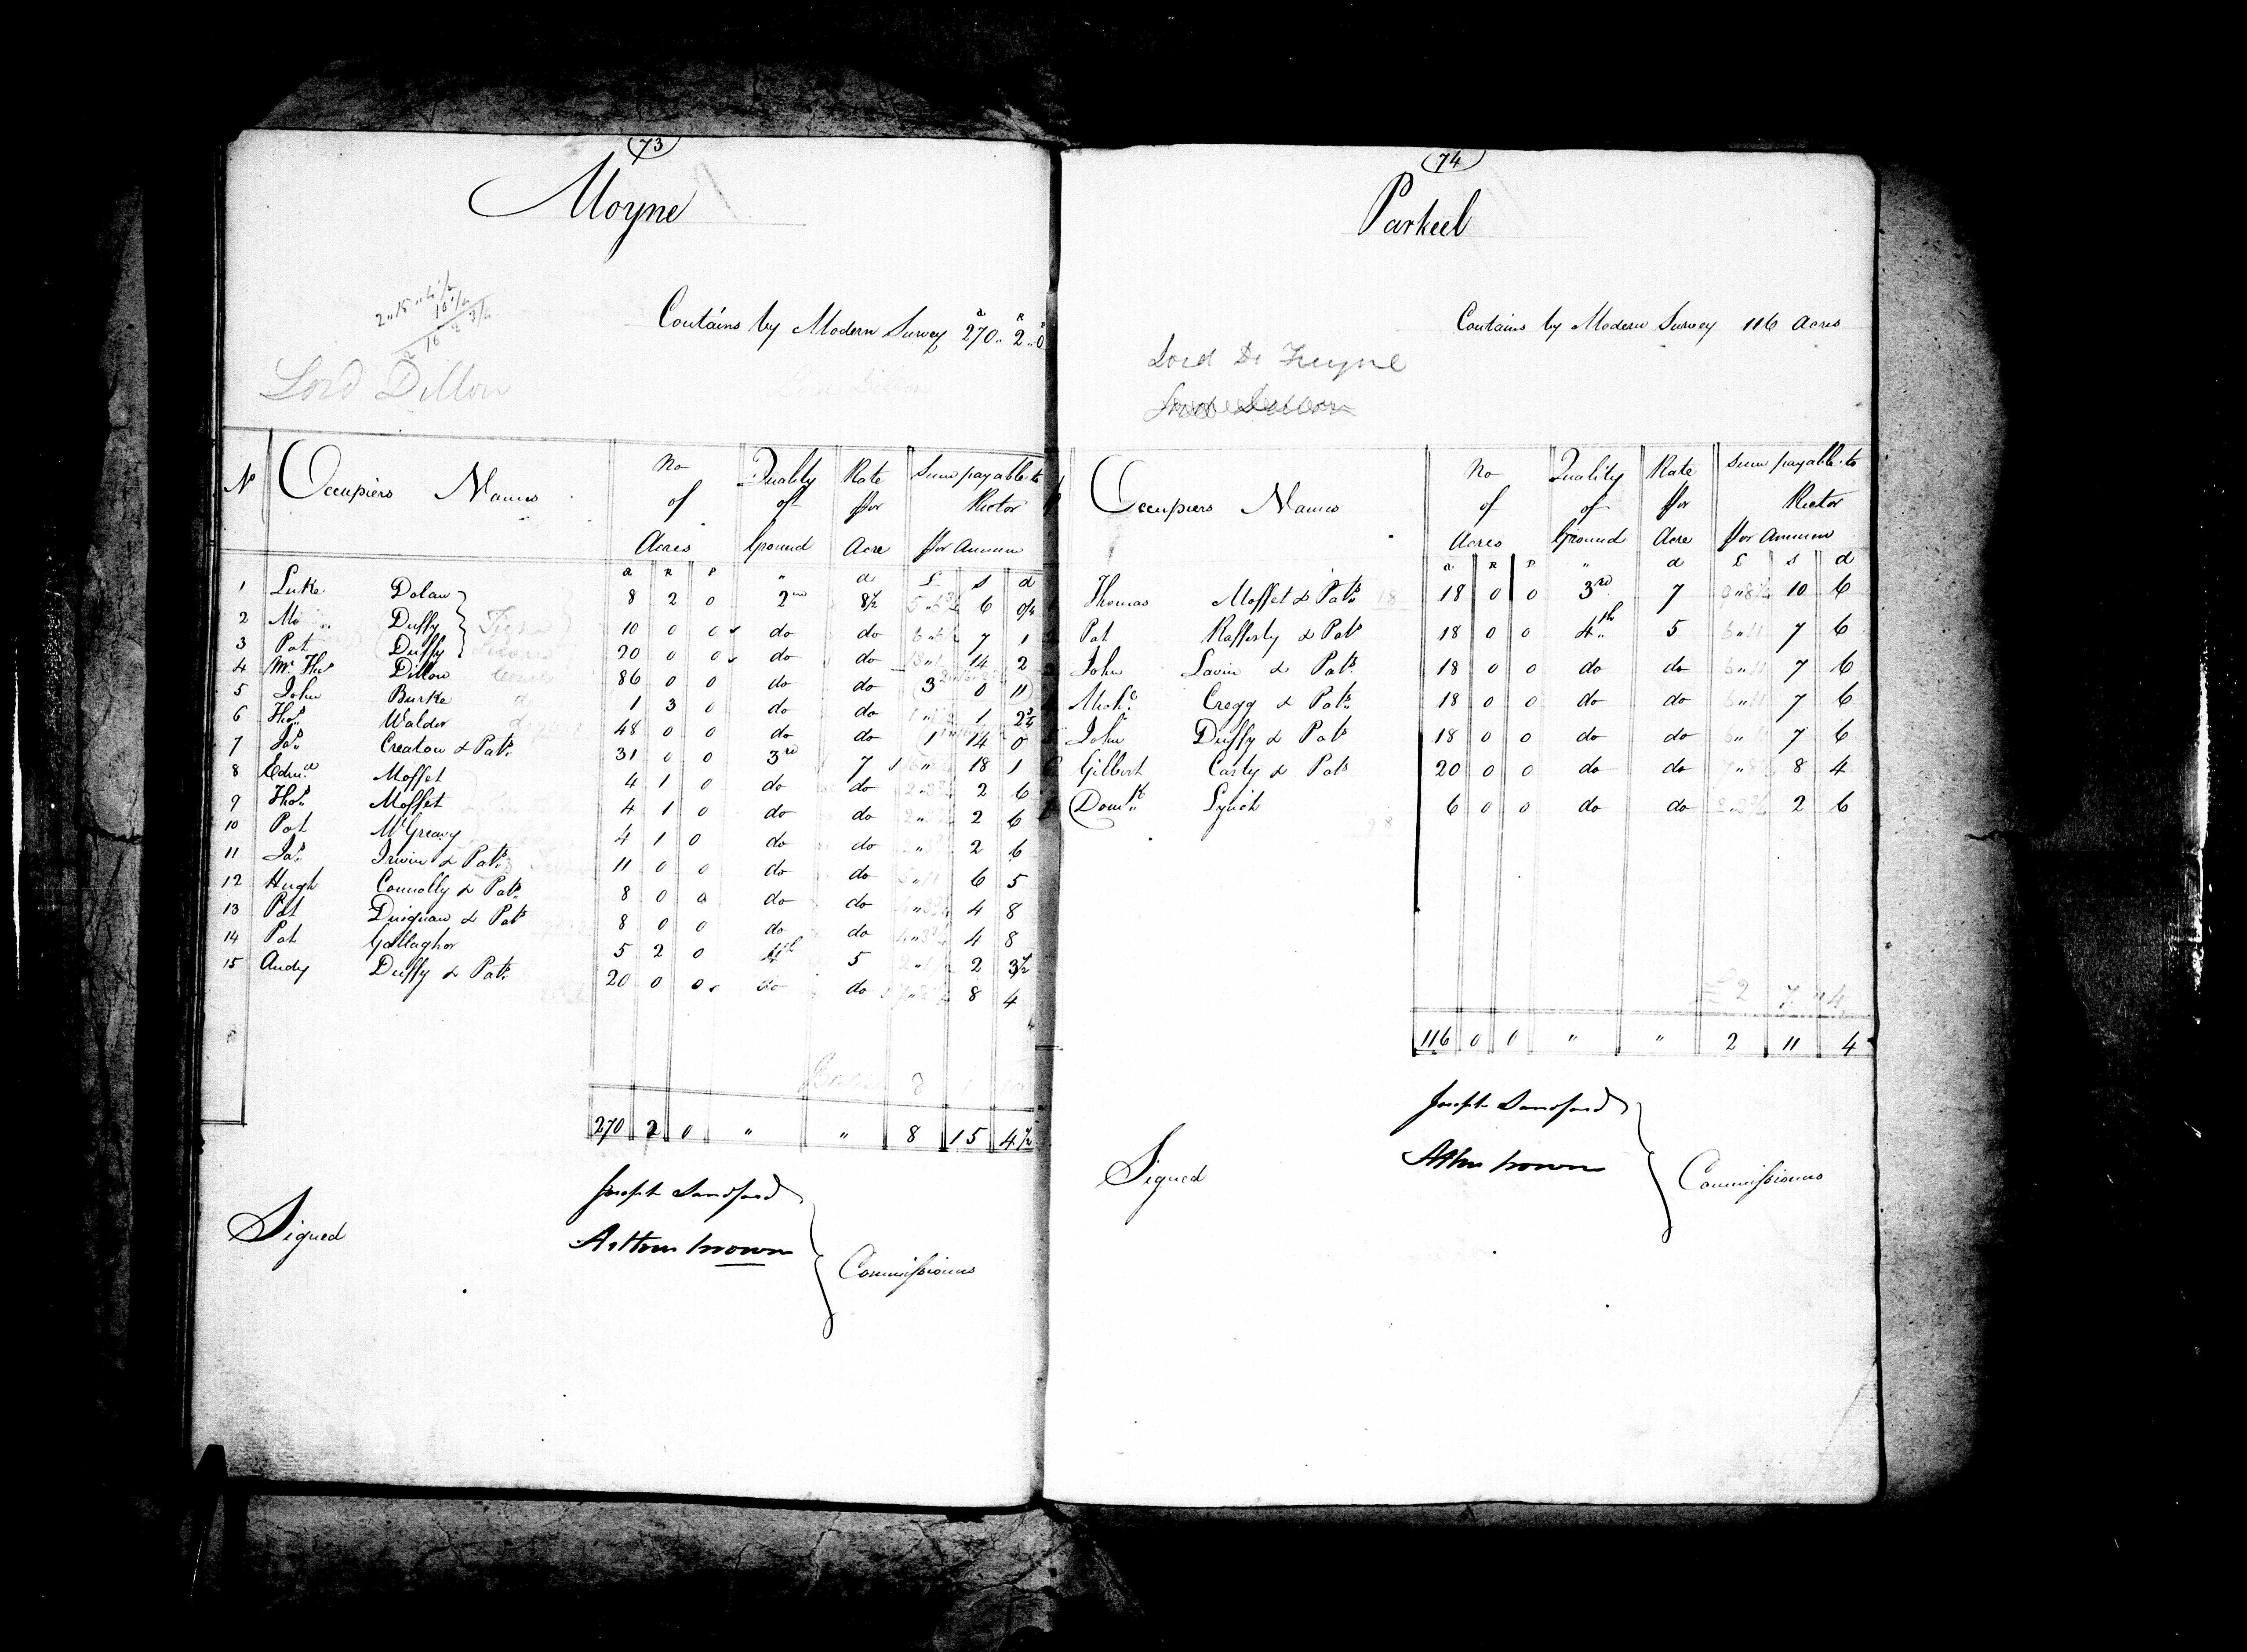 73
Moyne
Contains by Modern Survey 270 a 2 r 0
Lord Dillon
No Occupiers Names No of Acres Quality of Ground Rate per Acre Sum payable to Rector per Annum
a r p " d £ s d
1 Luke Dolan 8 2 0 2nd 8½ 6 0¼
2 Duffy 10 0 0 do do 7 1
3 Pat Duffy 20 0 0 do do 14 2
4 Mr. Thos Dillon 86 0 0 do do 3 0 11
5 John Burke 1 3 0 do do 1 2¾
6 Thos Walder 48 0 0 do do 1 14 0
7 Jas Creaton & Patrs 31 0 0 3rd 7 18 1
8 Edmd Moffet 4 1 0 do do 2 6
9 Thos Moffet 4 1 0 do do 2 6
10 Pat McGreavy 4 1 0 do do 2 6
11 Jas Irwin & Patrs 11 0 0 do do 6 5
12 Hugh Connolly & Patrs 8 0 0 do do 4 8
13 Pat Duignan & Patrs 8 0 0 do do 4 8
14 Pat Gallagher 5 2 0 4th 5 2 3½
15 Andy Duffy & Patrs 20 0 0 do do 8 4
270 2 0 " " 8 15 4½
Signed
Joseph Sandford
Arthur Brown
Commissioners
74
Parkeel
Contains by Modern Survey 116 Acres
Lord De Freyne
Lord Dillon
Occupiers Names No of Acres Quality of Ground Rate per Acre Sum payable to Rector per Annum
a R P " d £ s d
Thomas Moffet & Patrs 18 0 0 3rd 7 10 6
Pat Rafferty & Patrs 18 0 0 4th 5 7 6
John Lavin & Patrs 18 0 0 do do 7 6
Michl Cregg & Patrs 18 0 0 do do 7 6
John Duffy & Patrs 18 0 0 do do 7 6
Gilbert Carty & Patrs 20 0 0 do do 8 4
Domk Lynch 6 0 0 do do 2 6
£2 7 " 4
116 0 0 " " 2 11 4
Signed
Joseph Sandford
Arthur Brown
Commissioners